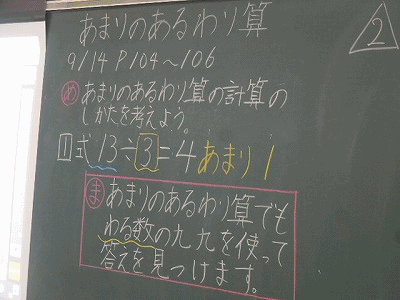 あまりのあるわり算
2
9/14 P104〜106
め あまりのあるわり算の計算の
しかたを考えよう。
1 式 13÷3=4あまり1
ま あまりのあるわり算でも
わる数の九九を使って
答えを見つけます。